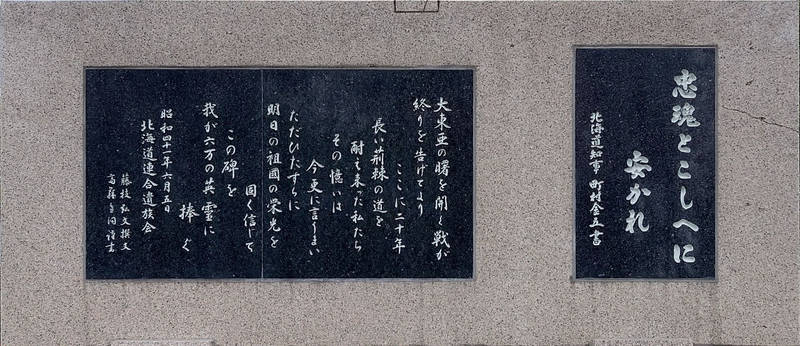 忠魂とこしへに
安かれ
北海道知事 町村金五書
大東亜の曙を開く戦が
終りを告げてより
ここに二十年
長い荊棘の道を
耐え来った私たち
その憶いは
今更に言うまい
ただひたすらに
明日の祖國の栄光を
固く信じて
この碑を
我が六万の英霊に
捧ぐ
昭和四十一年六月五日
北海道連合遺族会
藤枝弘文撰文